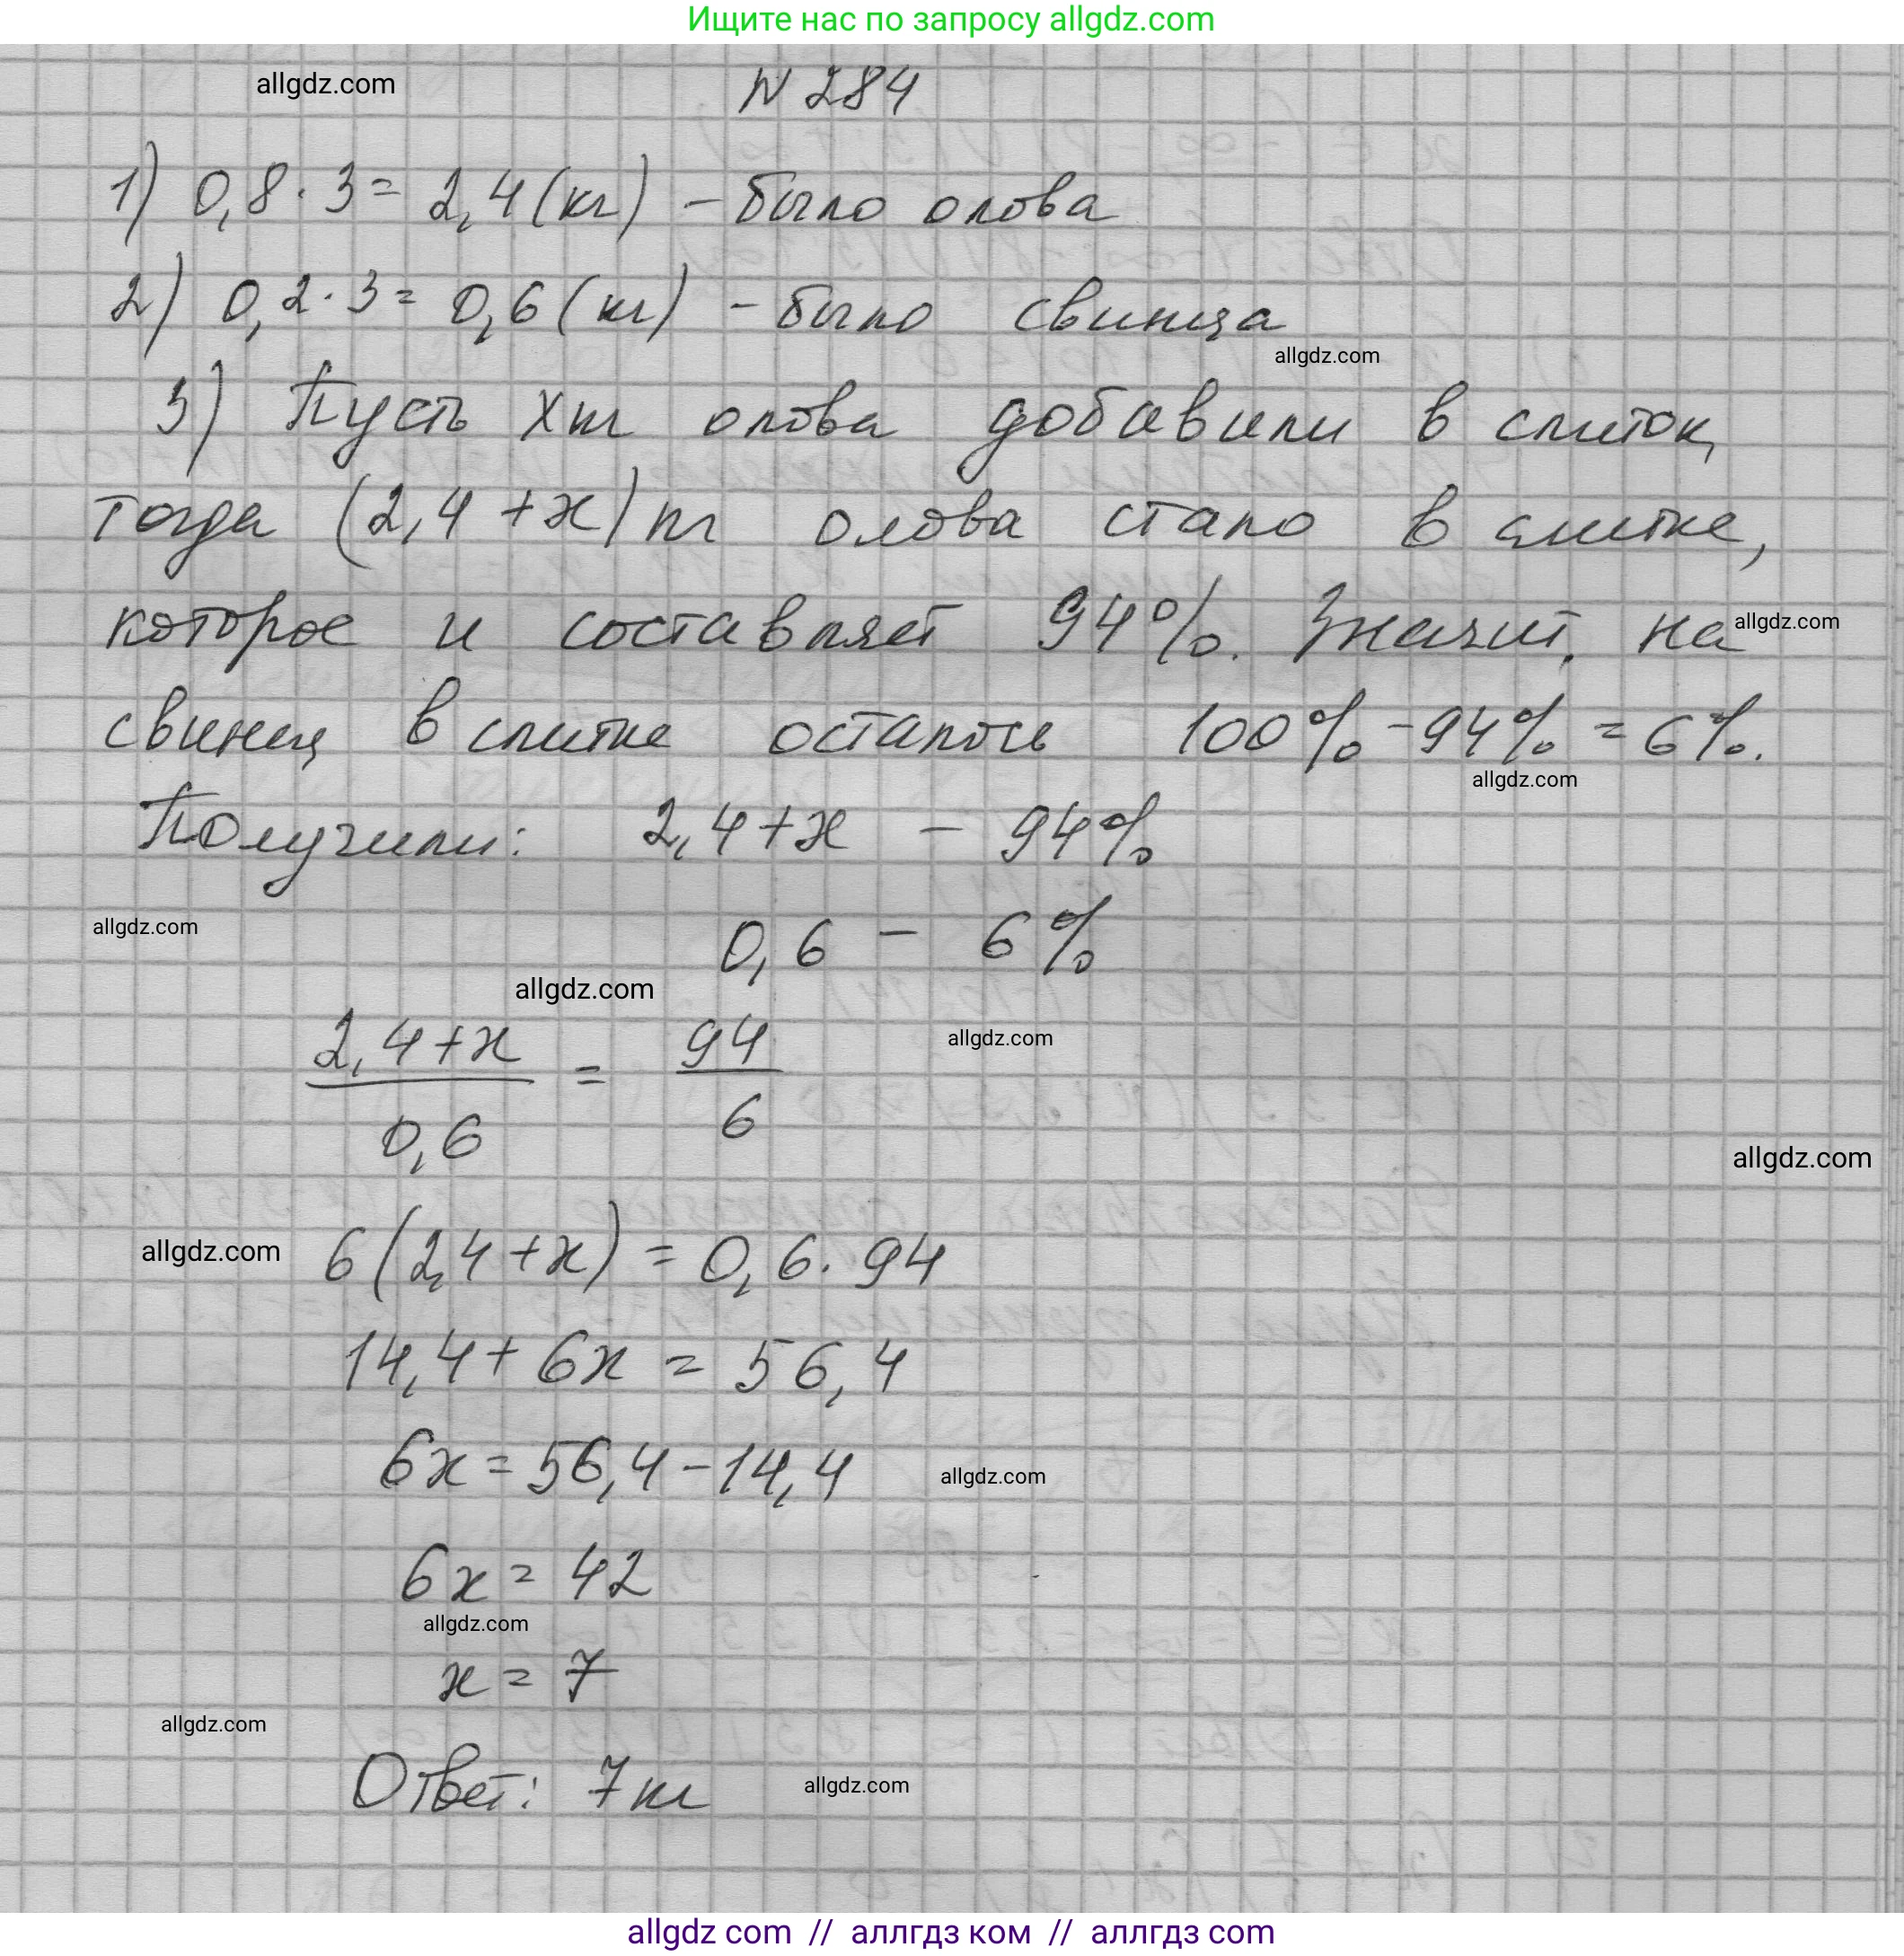 Ищите нас по запросу allgdz.com
allgdz.com
N 284
1) 0,8 · 3 = 2,4 (кг) - было олова
2) 0,2 · 3 = 0,6 (кг) - было свинца
allgdz.com
3) Пусть х кг олова добавили в слиток,
тогда (2,4 + x) кг олова стало в слитке,
которое и составляет 94%. Значит, на
allgdz.com
свинец в слитке осталось 100% - 94% = 6%.
allgdz.com
Получили: 2,4 + x - 94%
allgdz.com
0,6 - 6%
allgdz.com
2,4 + x / 0,6 = 94 / 6
allgdz.com
allgdz.com
allgdz.com
6(2,4 + x) = 0,6 · 94
14,4 + 6x = 56,4
6x = 56,4 - 14,4
allgdz.com
6x = 42
allgdz.com
x = 7
allgdz.com
Ответ: 7 кг
allgdz.com
allgdz com // аллгдз ком // аллгдз com